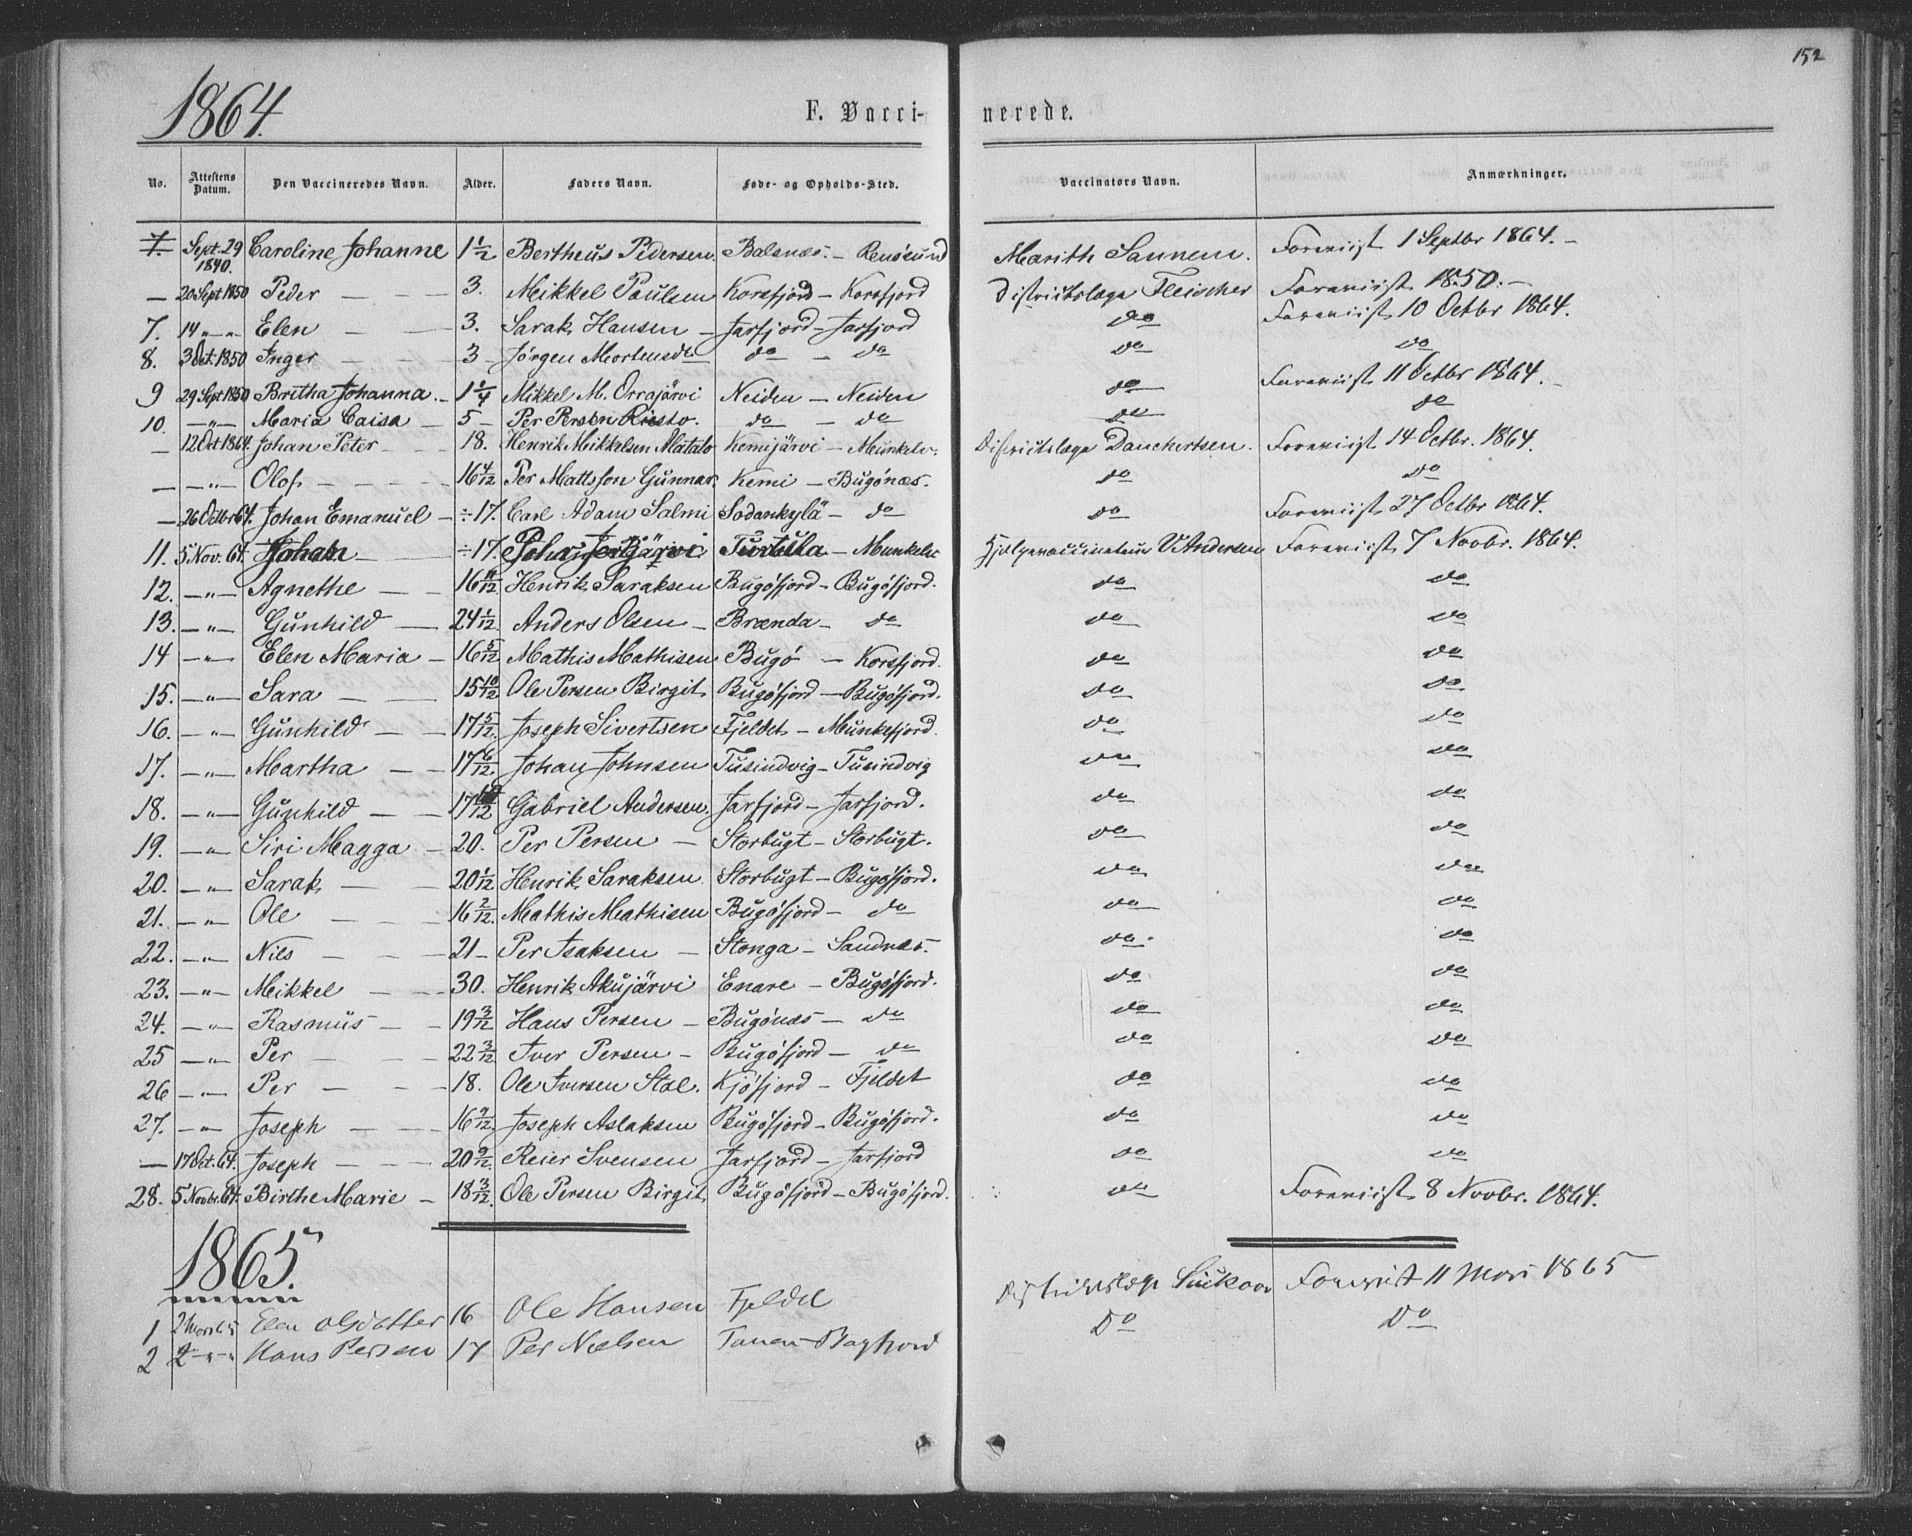 152
1864.
F. Vaccinerede.
No. Attestens Datum. Den Vaccineredes Navn. Alder. Faders Navn. Føde- og Opholds-Sted. Vaccinators Navn. Anmærkninger.
7. Sept. 29 1840. Caroline Johanne 1 1/2 Bertheus Pedersen Balsnæs. - Renøsund Marith Sannem. Foreviist 1 Septbr 1864. -
— 20 Sept 1850 Peder — — 3. Mikkel Paulsen Korsfjord - Korsfjord Distriktslæge Fleischer Foreviist 1850. -
7. 14 " " Elen — — 3. Sarak Hansen - Jarfjord - Jarfjord do Foreviist 10 Octbr 1864.
8. 3 Oct. 1850 Inger — — 3 - Jørgen Mortensen do - do do do
9 29 Sept 1850 Britha Johanna. - 1 1/4 Mikkel M. Orrajärvi Neiden - Neiden do Foreviist 11 Octbr 1864.
10. — " — Maria Caisa — 5 - Per Persen Riesto. do - do do do
— 12 Oct 1864. Johan Peter - - 18. Henrik Mikkelsen Matalo Kemijärvi - Munkelv. Distriktslæge Danchertsen. Foreviist 14 Octbr. 1864.
— — " — Olof. - - - 16 4/12 Per Mattsson Gunnar. Kemi - Bugønæs. do do
— 26 Octbr 64. Johan Emanuel - ÷ 17. Carl Adam Salmi Sodankylä - do do Foreviist 27 Octbr 1864.
11. 5 Nov. 64. Johan — ÷ 17. - Munkelv Hjelpevaccinateur Andersen Foreviist 7 Novbr. 1864.
12. — " — Agnethe — — 16 Henrik Saraksen Bugøfjord - Bugøfjord. do do
13. — " — Gunhild — 24 1/12 Anders Olsen - Brænda - do do do
14 — " — Elen Maria - 16 5/12 Mathis Mathisen Bugø - Korsfjord. do do
15. — " — Sara — — 15 10/12 Ole Persen Birgit Bugøfjord - Bugøfjord. do do
16. — " — Gunhild — — 17 5/12. Joseph Sivertsen Fjeldet - Munkefjord. do do
17. — " — Martha — — 17 6/12. Johan Johnsen Tusindvig - Tusindvig do do
18. — " — Gunhild — — 17 Gabriel Andersen. Jarfjord - Jarfjord. do do
19. — " — Siri Magga - 20. Per Persen — Storbugt - Storbugt. do do
20. — " — Sarak, — — 20 1/12 Henrik Saraksen. Storbugt - Bugøfjord. do do
21. — " — Ole — — 16 2/12. Mathis Mathisen Bugøfjord - do do do
22. — " — Nils — — 21 - Per Isaksen — Stonga - Sandnæs. do do
23. — " — Mikkel — — 30. Henrik Akujärvi Enare - Bugøfjord. do do
24. — " — Rasmus - — 19 3/12 Hans Persen - Bugønæs - do do do
25 — " — Per — — 22 3/12 Iver Persen - Bugøfjord - do do do
26 — " — Per — — 18. Ole Iversen Stal. Kjøfjord - Fjeldet do do
27. — " — Joseph — — 16 9/12. Joseph Aslaksen Bugøfjord - Bugøfjord. do do
— 17 Oct. 64. Joseph — — 20 9/12. Reier Svensen Jarfjord - Jarfjord do do
28. 5 Novbr. 64. Birthe Marie - 18 3/12. Ole Persen Birgit, Bugøfjord - Bugøfjord. do Foreviist 8 Novbr. 1864.
1865.
1 2 Mars 65 Elen Olsdatter 16 Ole Hansen Fjeldet Distriktslæge Foreviist 11 Mars 1865
2 2 - " - " Hans Persen 17 Per Nielsen Tanen - Do Do